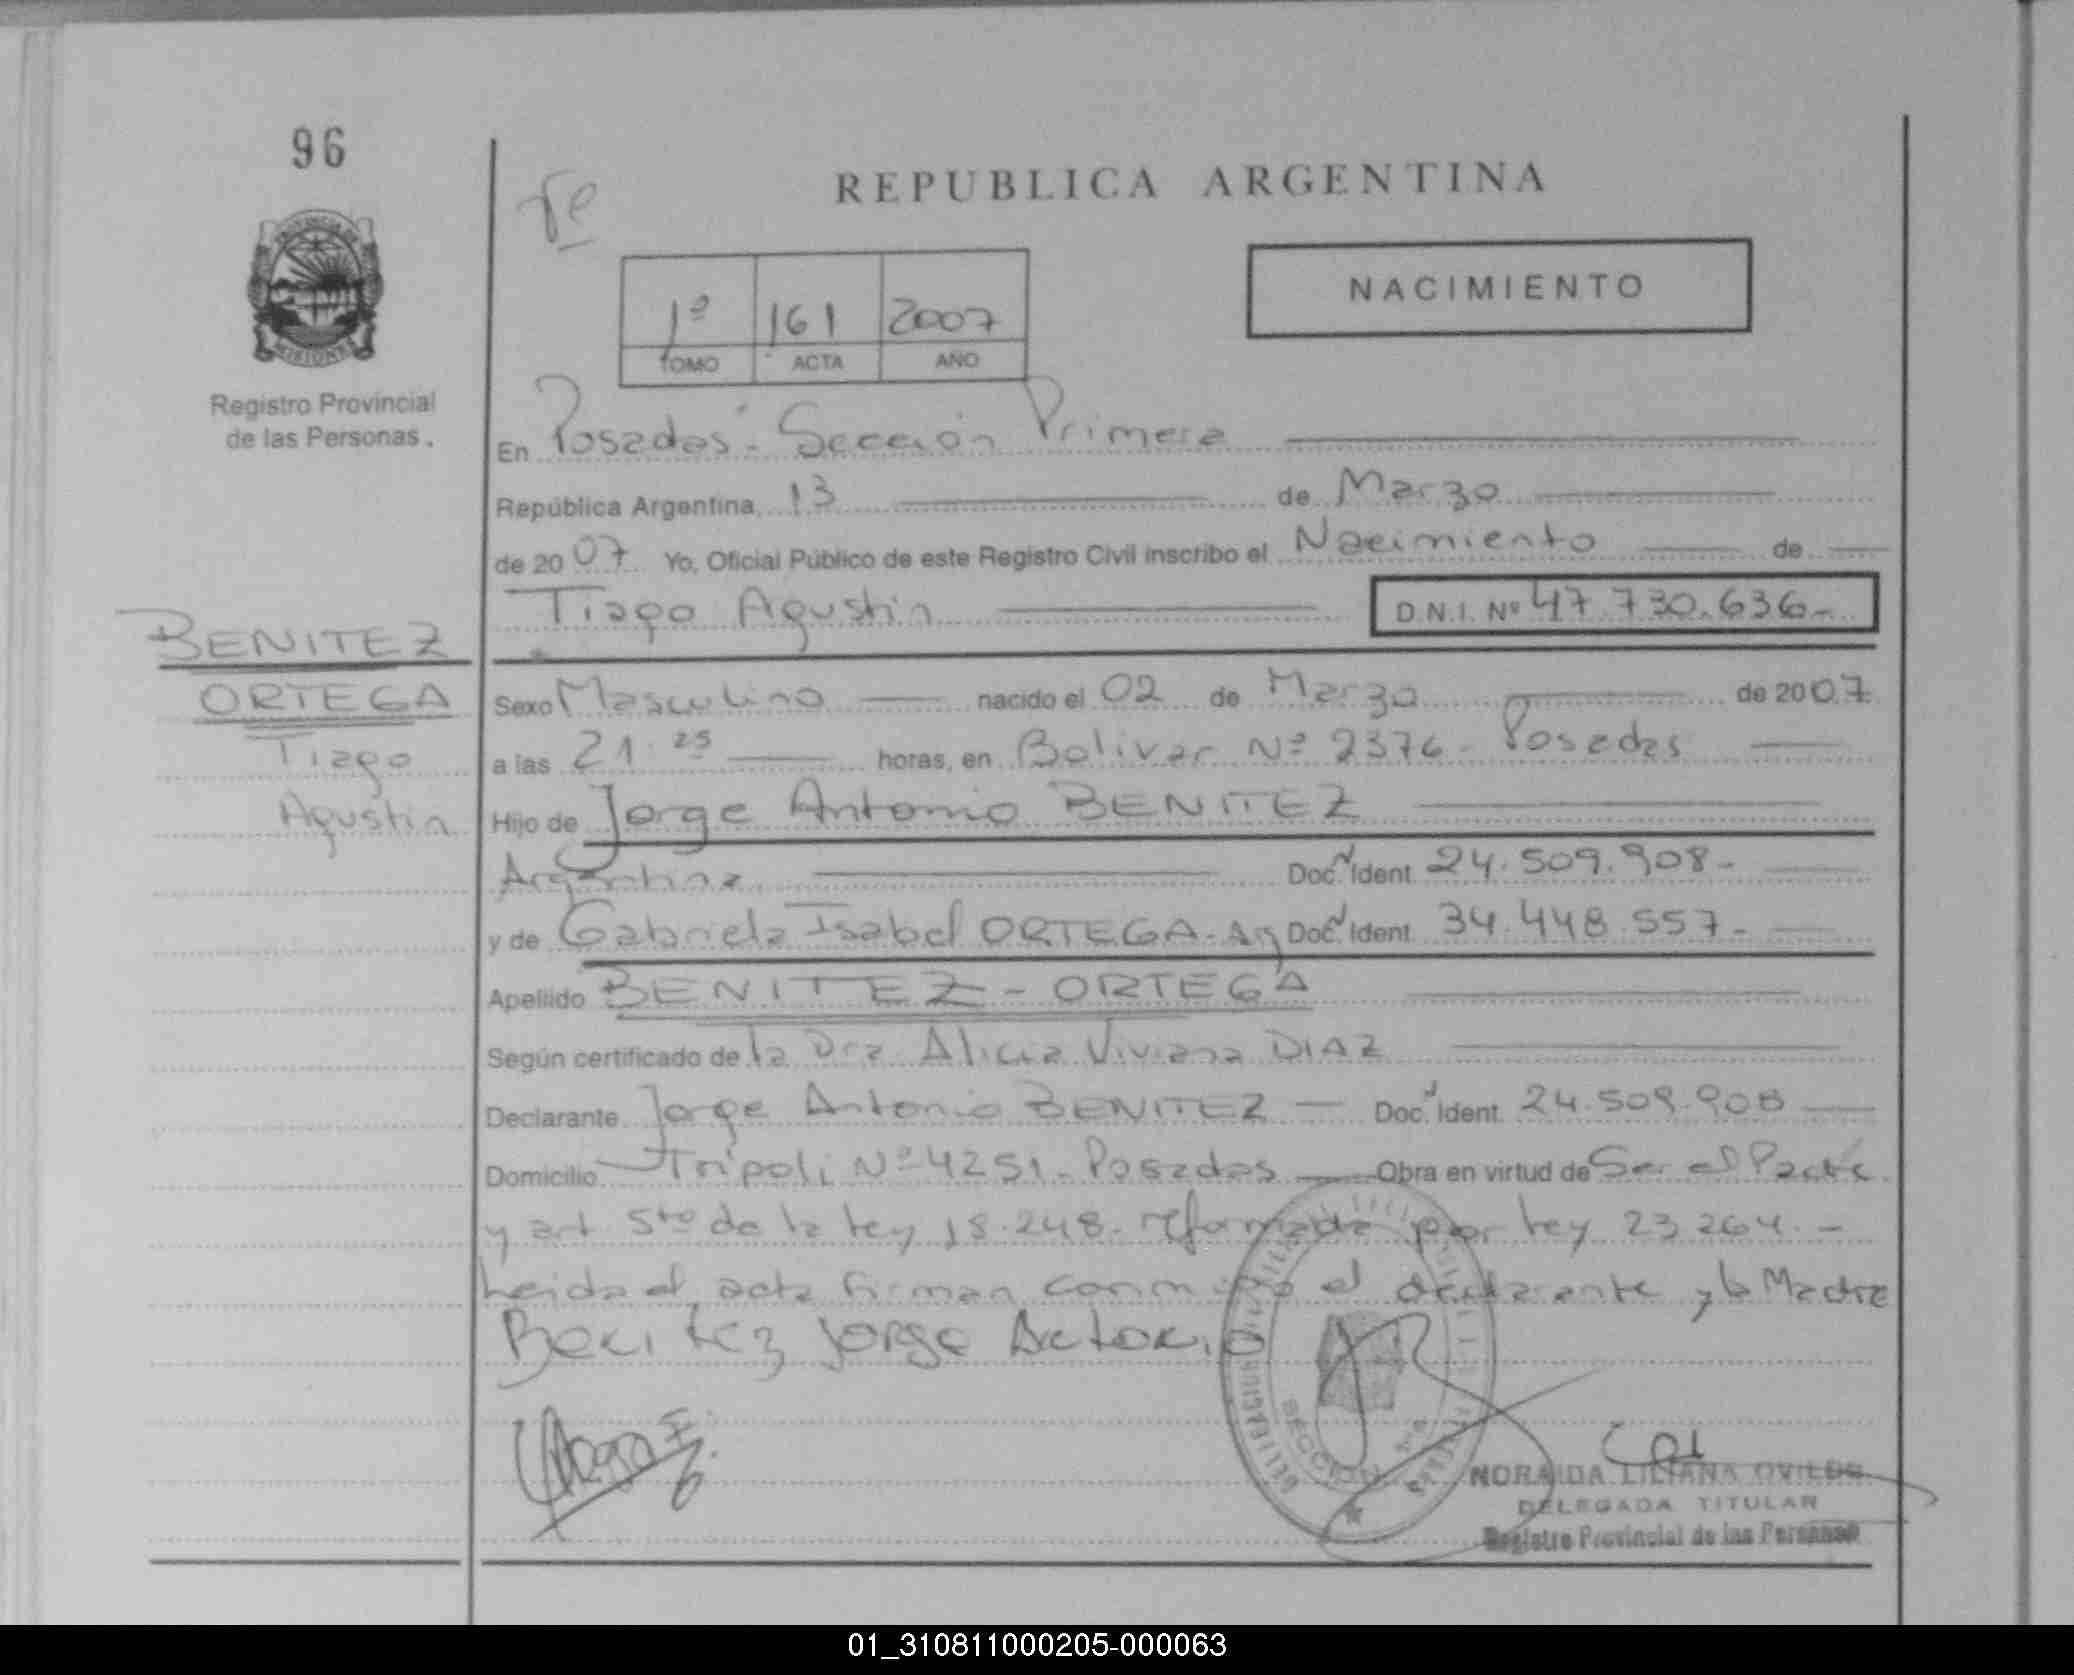 96
REPUBLICA ARGENTINA
1º 161 2007
TOMO ACTA AÑO
NACIMIENTO
PROVINCIA DE
MISIONES
Registro Provincial
de las Personas.
En Posadas - Sección Primera
República Argentina, 13 de Marzo
de 2007 Yo, Oficial Público de este Registro Civil inscribo el Nacimiento de
Tiago Agustin D.N.I. Nº 47.730.636-
BENITEZ
ORTEGA
Tiago
Agustin
Sexo Masculino nacido el 02 de Marzo de 2007
a las 21.25 horas, en Bolivar Nº 2376 - Posadas
Hijo de Jorge Antonio BENITEZ
Argentina Doc. Ident 24.509.908-
y de Gabriela Isabel ORTEGA - Arg Doc. Ident 34.448.557-
Apellido BENITEZ - ORTEGA
Según certificado de la Dra. Alicia Viviana DIAZ
Declarante Jorge Antonio BENITEZ - Doc. Ident. 24.509.908
Domicilio Tripoli Nº 4251 - Posadas Obra en virtud de Ser el Padre
y art 5to de la ley 18.248. reformada por ley 23.264.-
Leida el acta firman conmigo el declarante y la Madre
Benitez Jorge Antonio
SECCION
NORAIDA LILIANA OVIEDO
DELEGADA TITULAR
Registro Provincial de las Personas
01_310811000205-000063